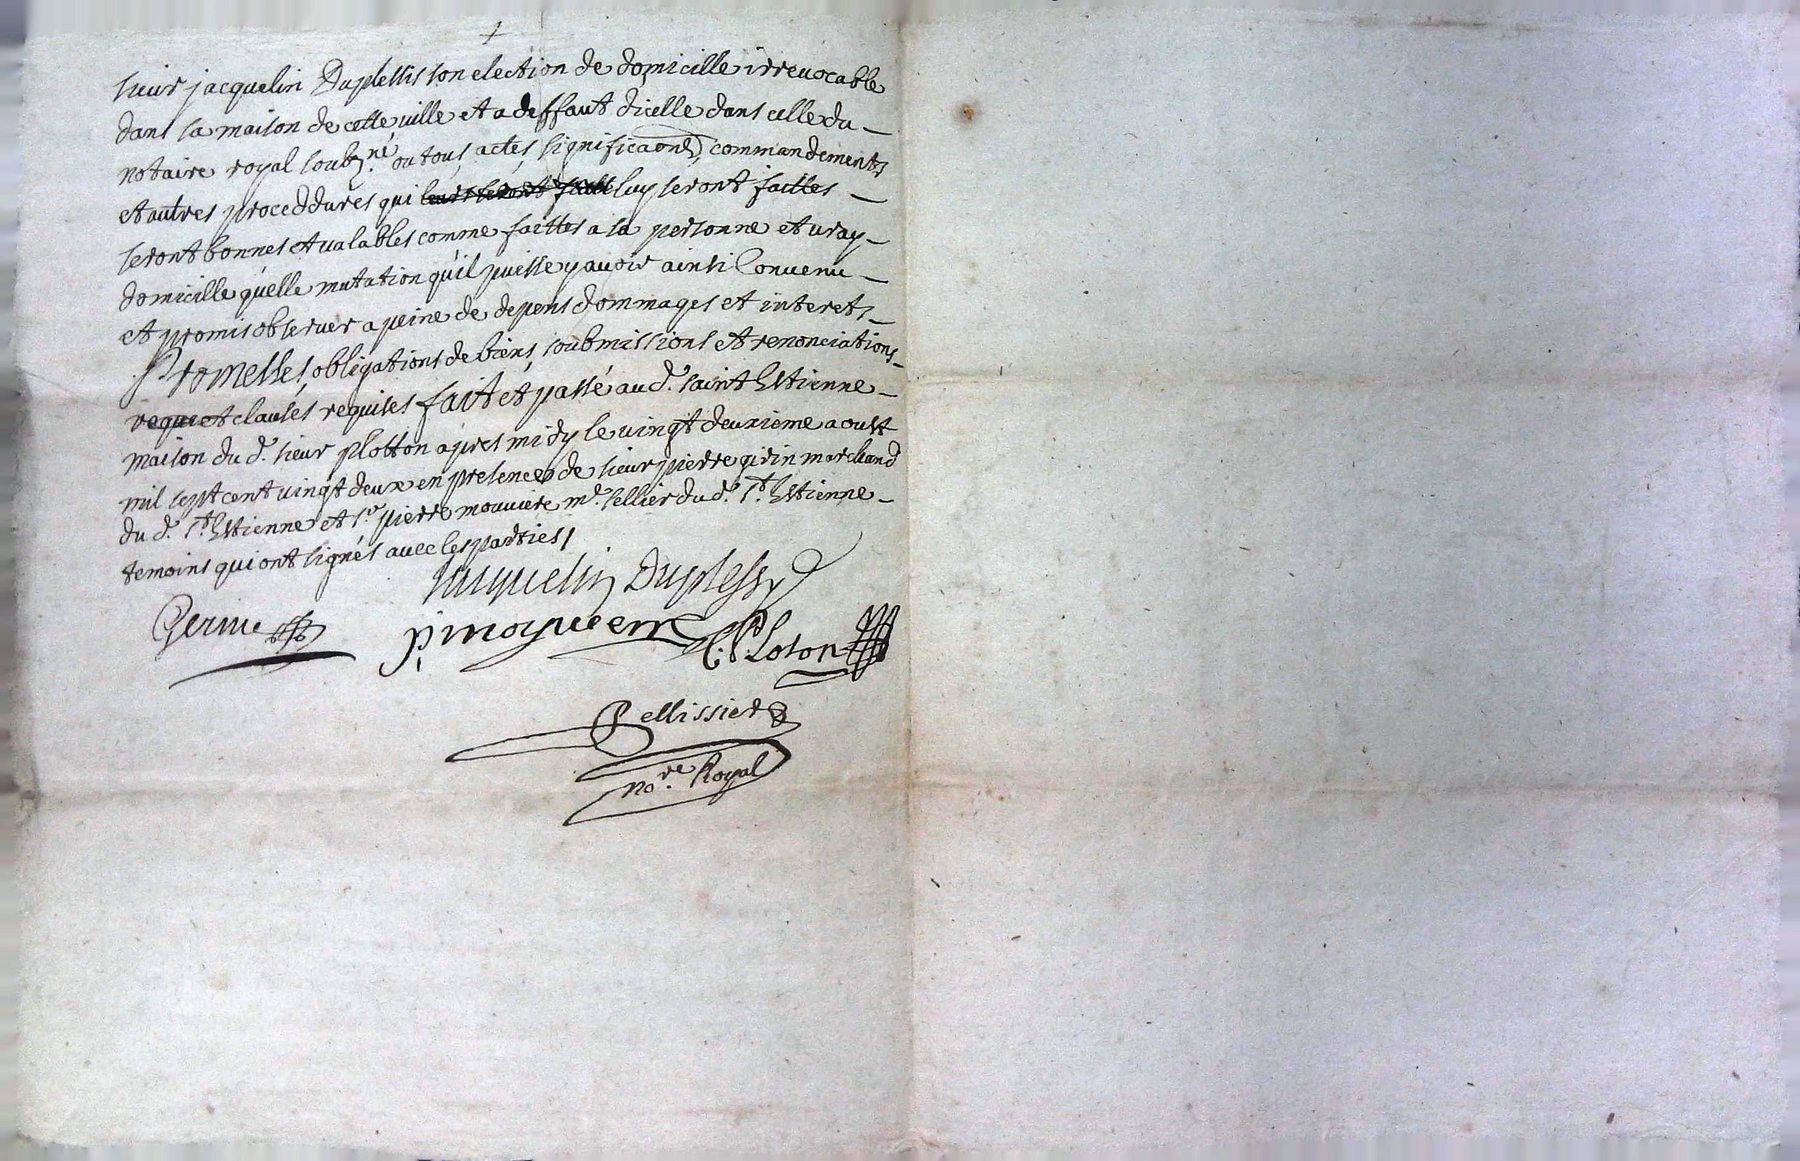 sieur jacquelin Duplessis son election de domicille irrevocable
dans sa maison de cette ville et a deffaut dicelle dans celle du
notaire royal soubz.né ou tous actes, significaons, commandements
et autres proceddures qui luy seront faittes
seront bonnes et valables comme faittes a sa personne et vray
domicille quelle mutation qu'il puisse y avoir ainsi Convenu
et promis observer a peine de depens dommages et interets
Promesses, obligations de biens, soubmissions et renonciations
et clauses requises fait et passé au d. saint Estienne
maison du d. sieur plotton apres midy le vingt deuxieme aoust
mil sept cent vingt deux en presences de sieur pierre qirin marchand
du d. St. Estienne et sr. pierre mouniere md. sellier du d. St. Estienne
temoins qui ont signés avec les parties /
Jacquelin Duplessy
p. moyneerre C. Ploton
Pellissier
no.re Royal